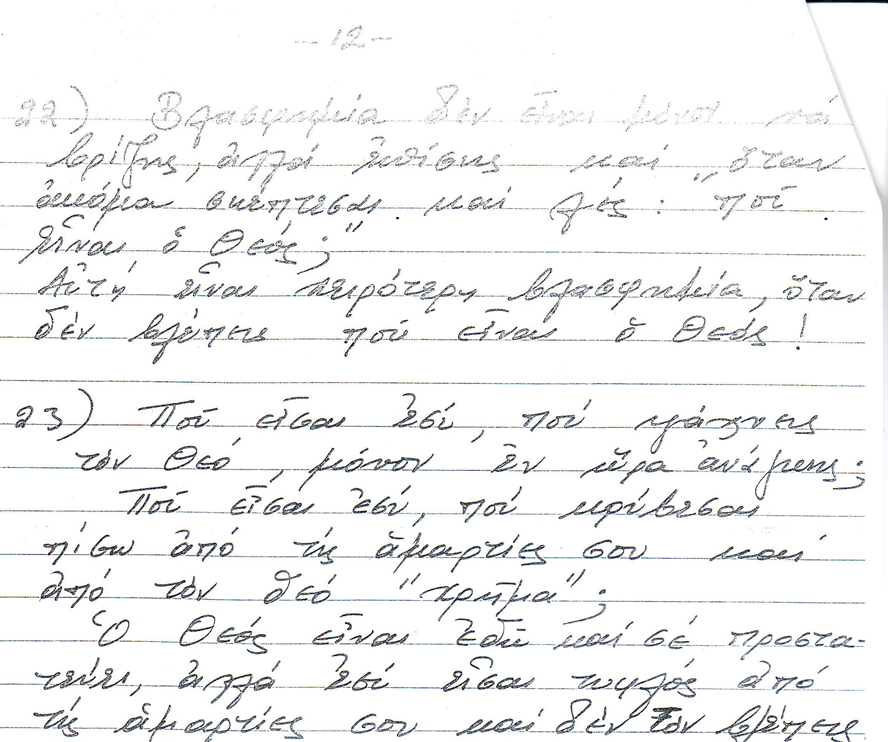 -12-
22) Βλασφημία δέν εἶναι μόνον νά
βρίζης, ἀλλά ἐπίσης καί ὅταν
ἀκόμα σκέπτεσαι καί λές: "ποῦ
εἶναι ὁ Θεός;"
Αὐτή εἶναι χειρότερη βλασφημία, ὅταν
δέν βλέπεις ποῦ εἶναι ὁ Θεός!
23) Ποῦ εἶσαι ἐσύ, πού ψάχνεις
τόν Θεό, μόνον ἐν ὥρα ἀνάγκης;
Ποῦ εἶσαι ἐσύ, πού κρύβεσαι
πίσω ἀπό τίς ἁμαρτίες σου καί
ἀπό τόν θεό "χρῆμα";
Ὁ Θεός εἶναι ἐδῶ καί σέ προστα-
τεύει, ἀλλά ἐσύ εἶσαι τυφλός ἀπό
τίς ἁμαρτίες σου καί δέν τόν βλέπεις